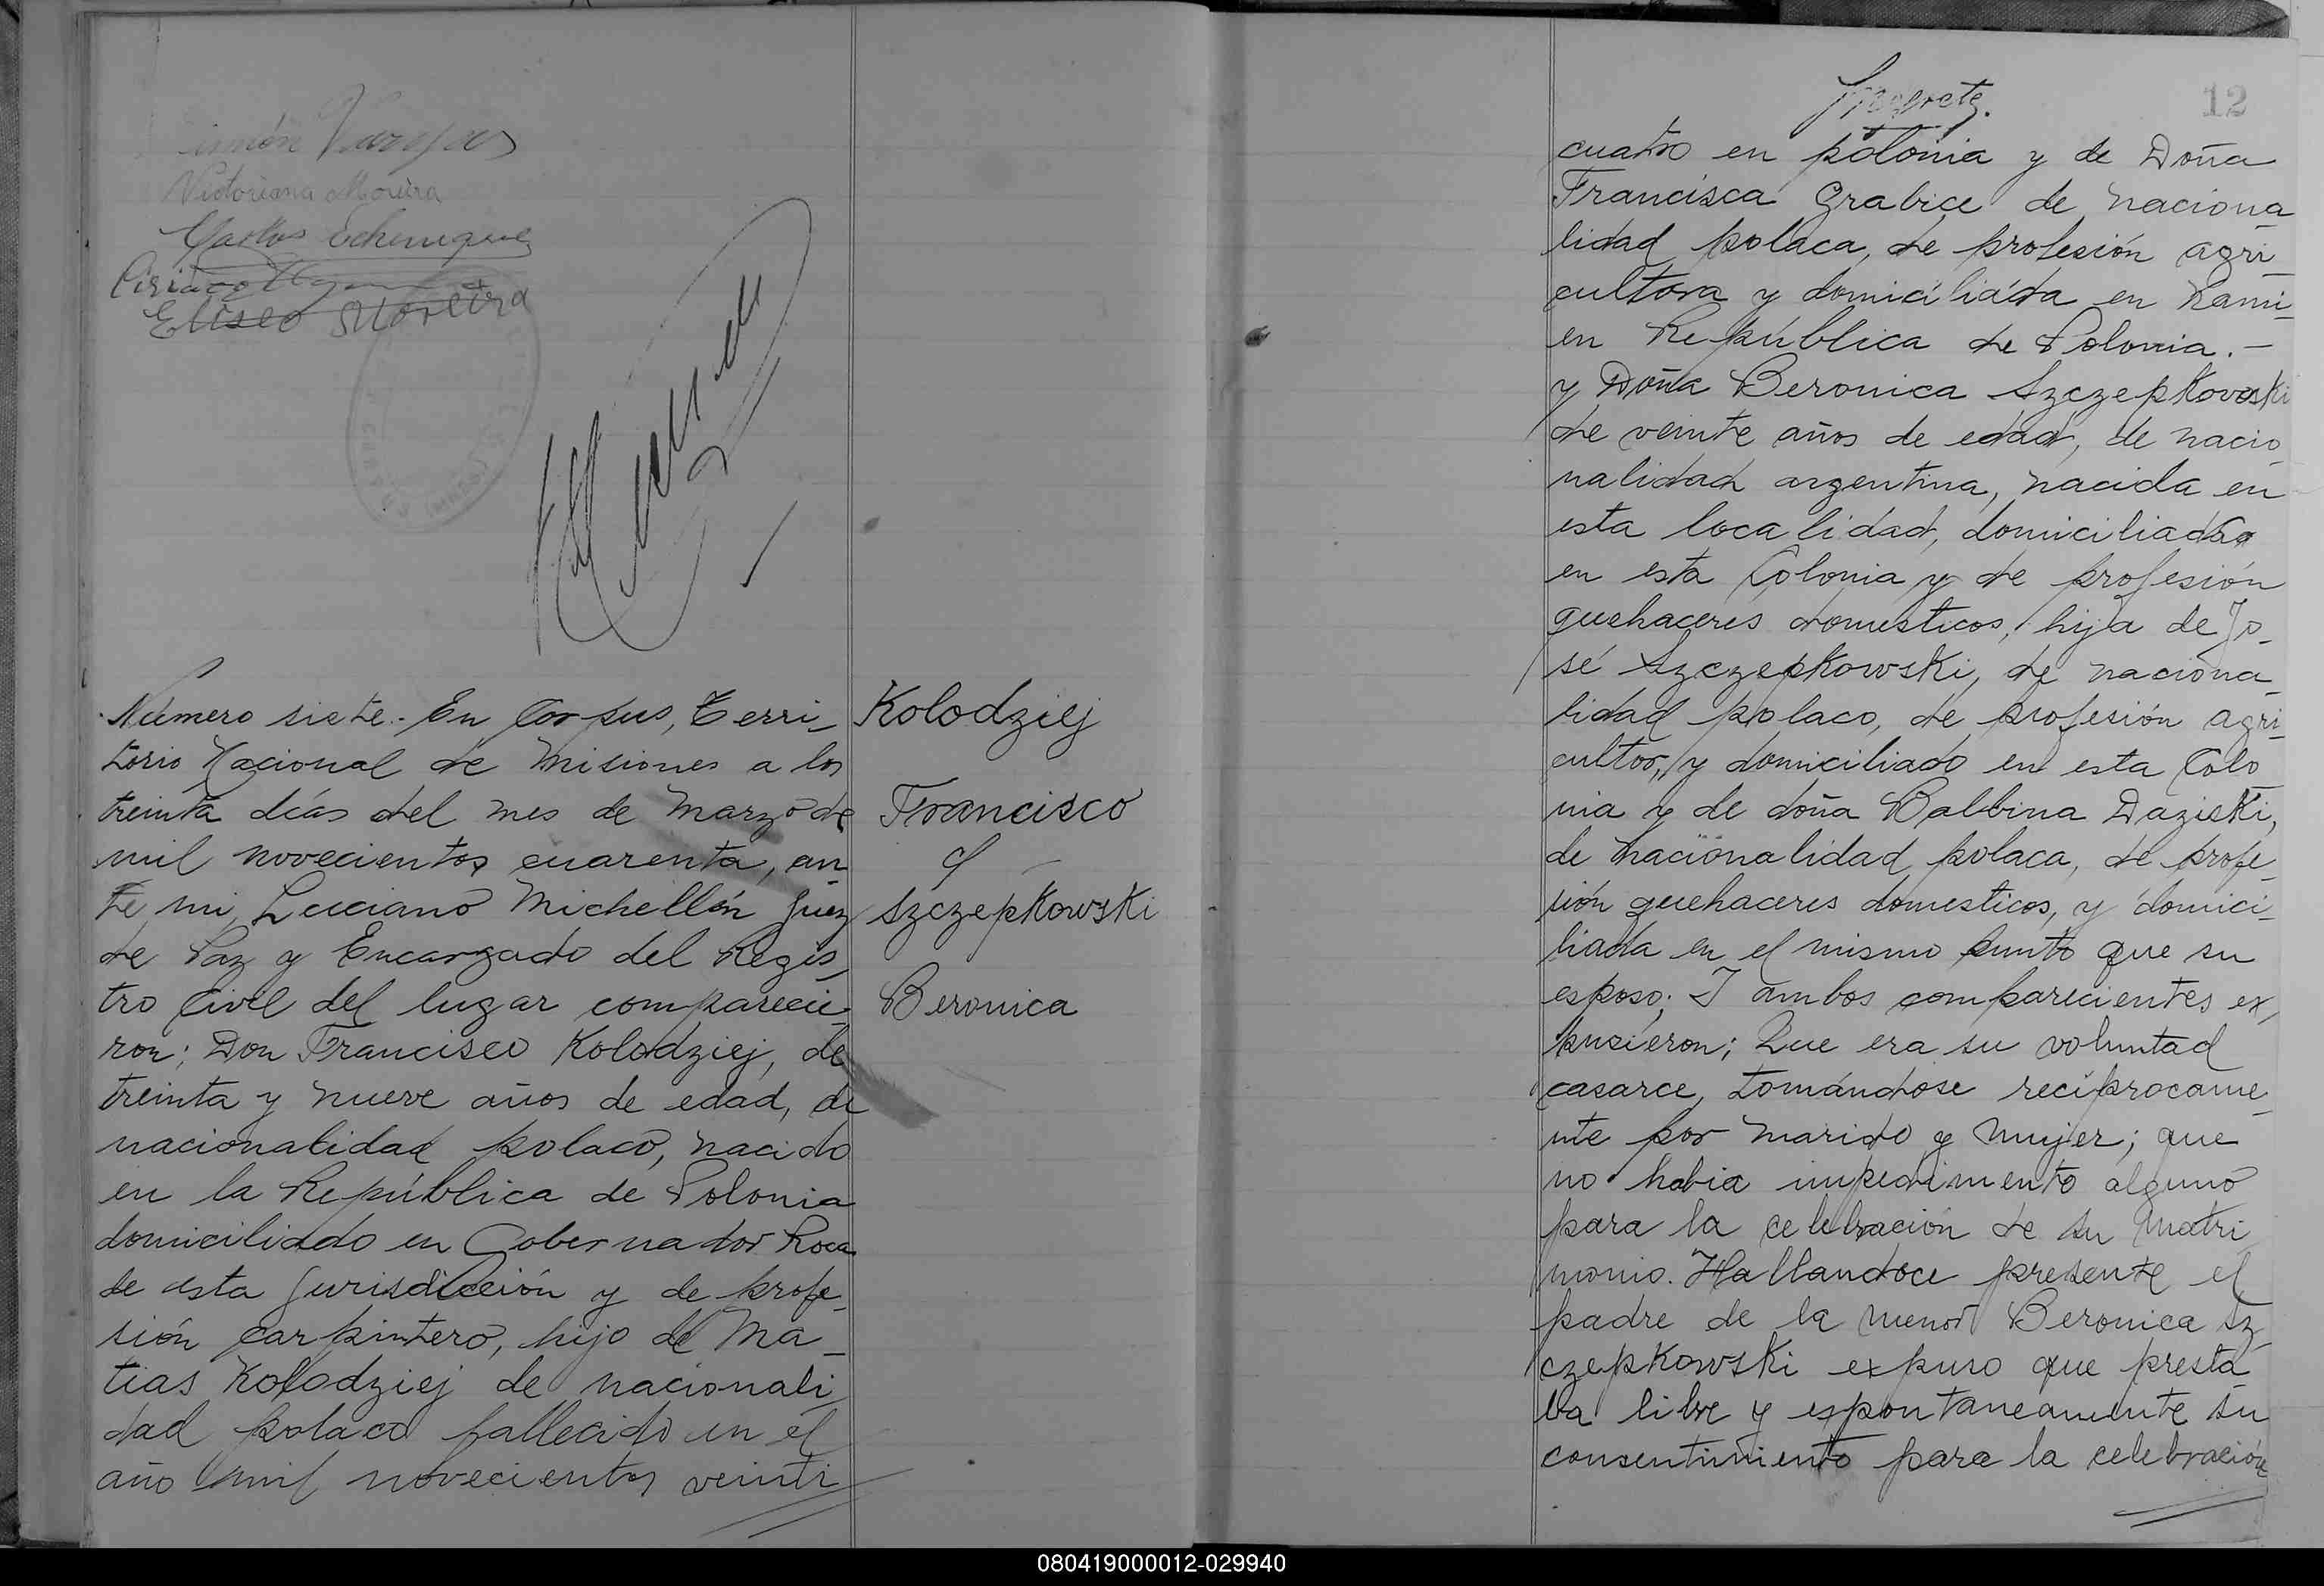 Simón Vargas
Victoriana Moreira
Carlos Echenique
Ciriaco
Eliseo Moreira
Número siete.- En Corpus, Terri-
torio Nacional de Misiones a los
treinta días del mes de Marzo de
mil novecientos cuarenta, an-
te mi, Luciano Michellón Juez
de Paz y Encargado del Regis-
tro Civil del lugar comparecie-
ron; Don Francisco Kolodziej, de
treinta y nueve años de edad, de
nacionalidad polaco, nacido
en la República de Polonia
domiciliado en Gobernador Roca
de esta Jurisdicción y de profe-
sión carpintero, hijo de Ma-
tias Kolodziej de nacionali-
dad polaco fallecido en el
año mil novecientos veinti
Kolodziej
Francisco
c/
Szczepkowski
Beronica
12
cuatro en polonia y de Doña
Francisca Grabice de naciona-
lidad polaca, de profesión agri-
cultora y domiciliada en Kami-
en República de Polonia.-
y Doña Beronica Szczepkowski
de veinte años de edad, de nacio-
nalidad argentina, nacida en
esta localidad, domiciliada
en esta Colonia y de profesión
quehaceres domesticos, hija de Jo-
sé Szczepkowski, de naciona-
lidad polaco, de profesión agri-
cultor, y domiciliado en esta Colo-
nia y de doña Balbina Daziski,
de nacionalidad polaca, de profe-
sión quehaceres domesticos, y domici-
liada en el mismo punto que su
esposo; I ambos comparecientes ex-
pusieron; Que era su voluntad
casarce, tomándose reciprocame-
nte por marido y mujer; que
no habia impedimento alguno
para la celebración de su matri-
monio. Hallandoce presente el
padre de la menor Beronica Sz-
czepkowski expuso que presta-
ba libre y espontaneamente su
consentimiento para la celebración
080419000012-029940